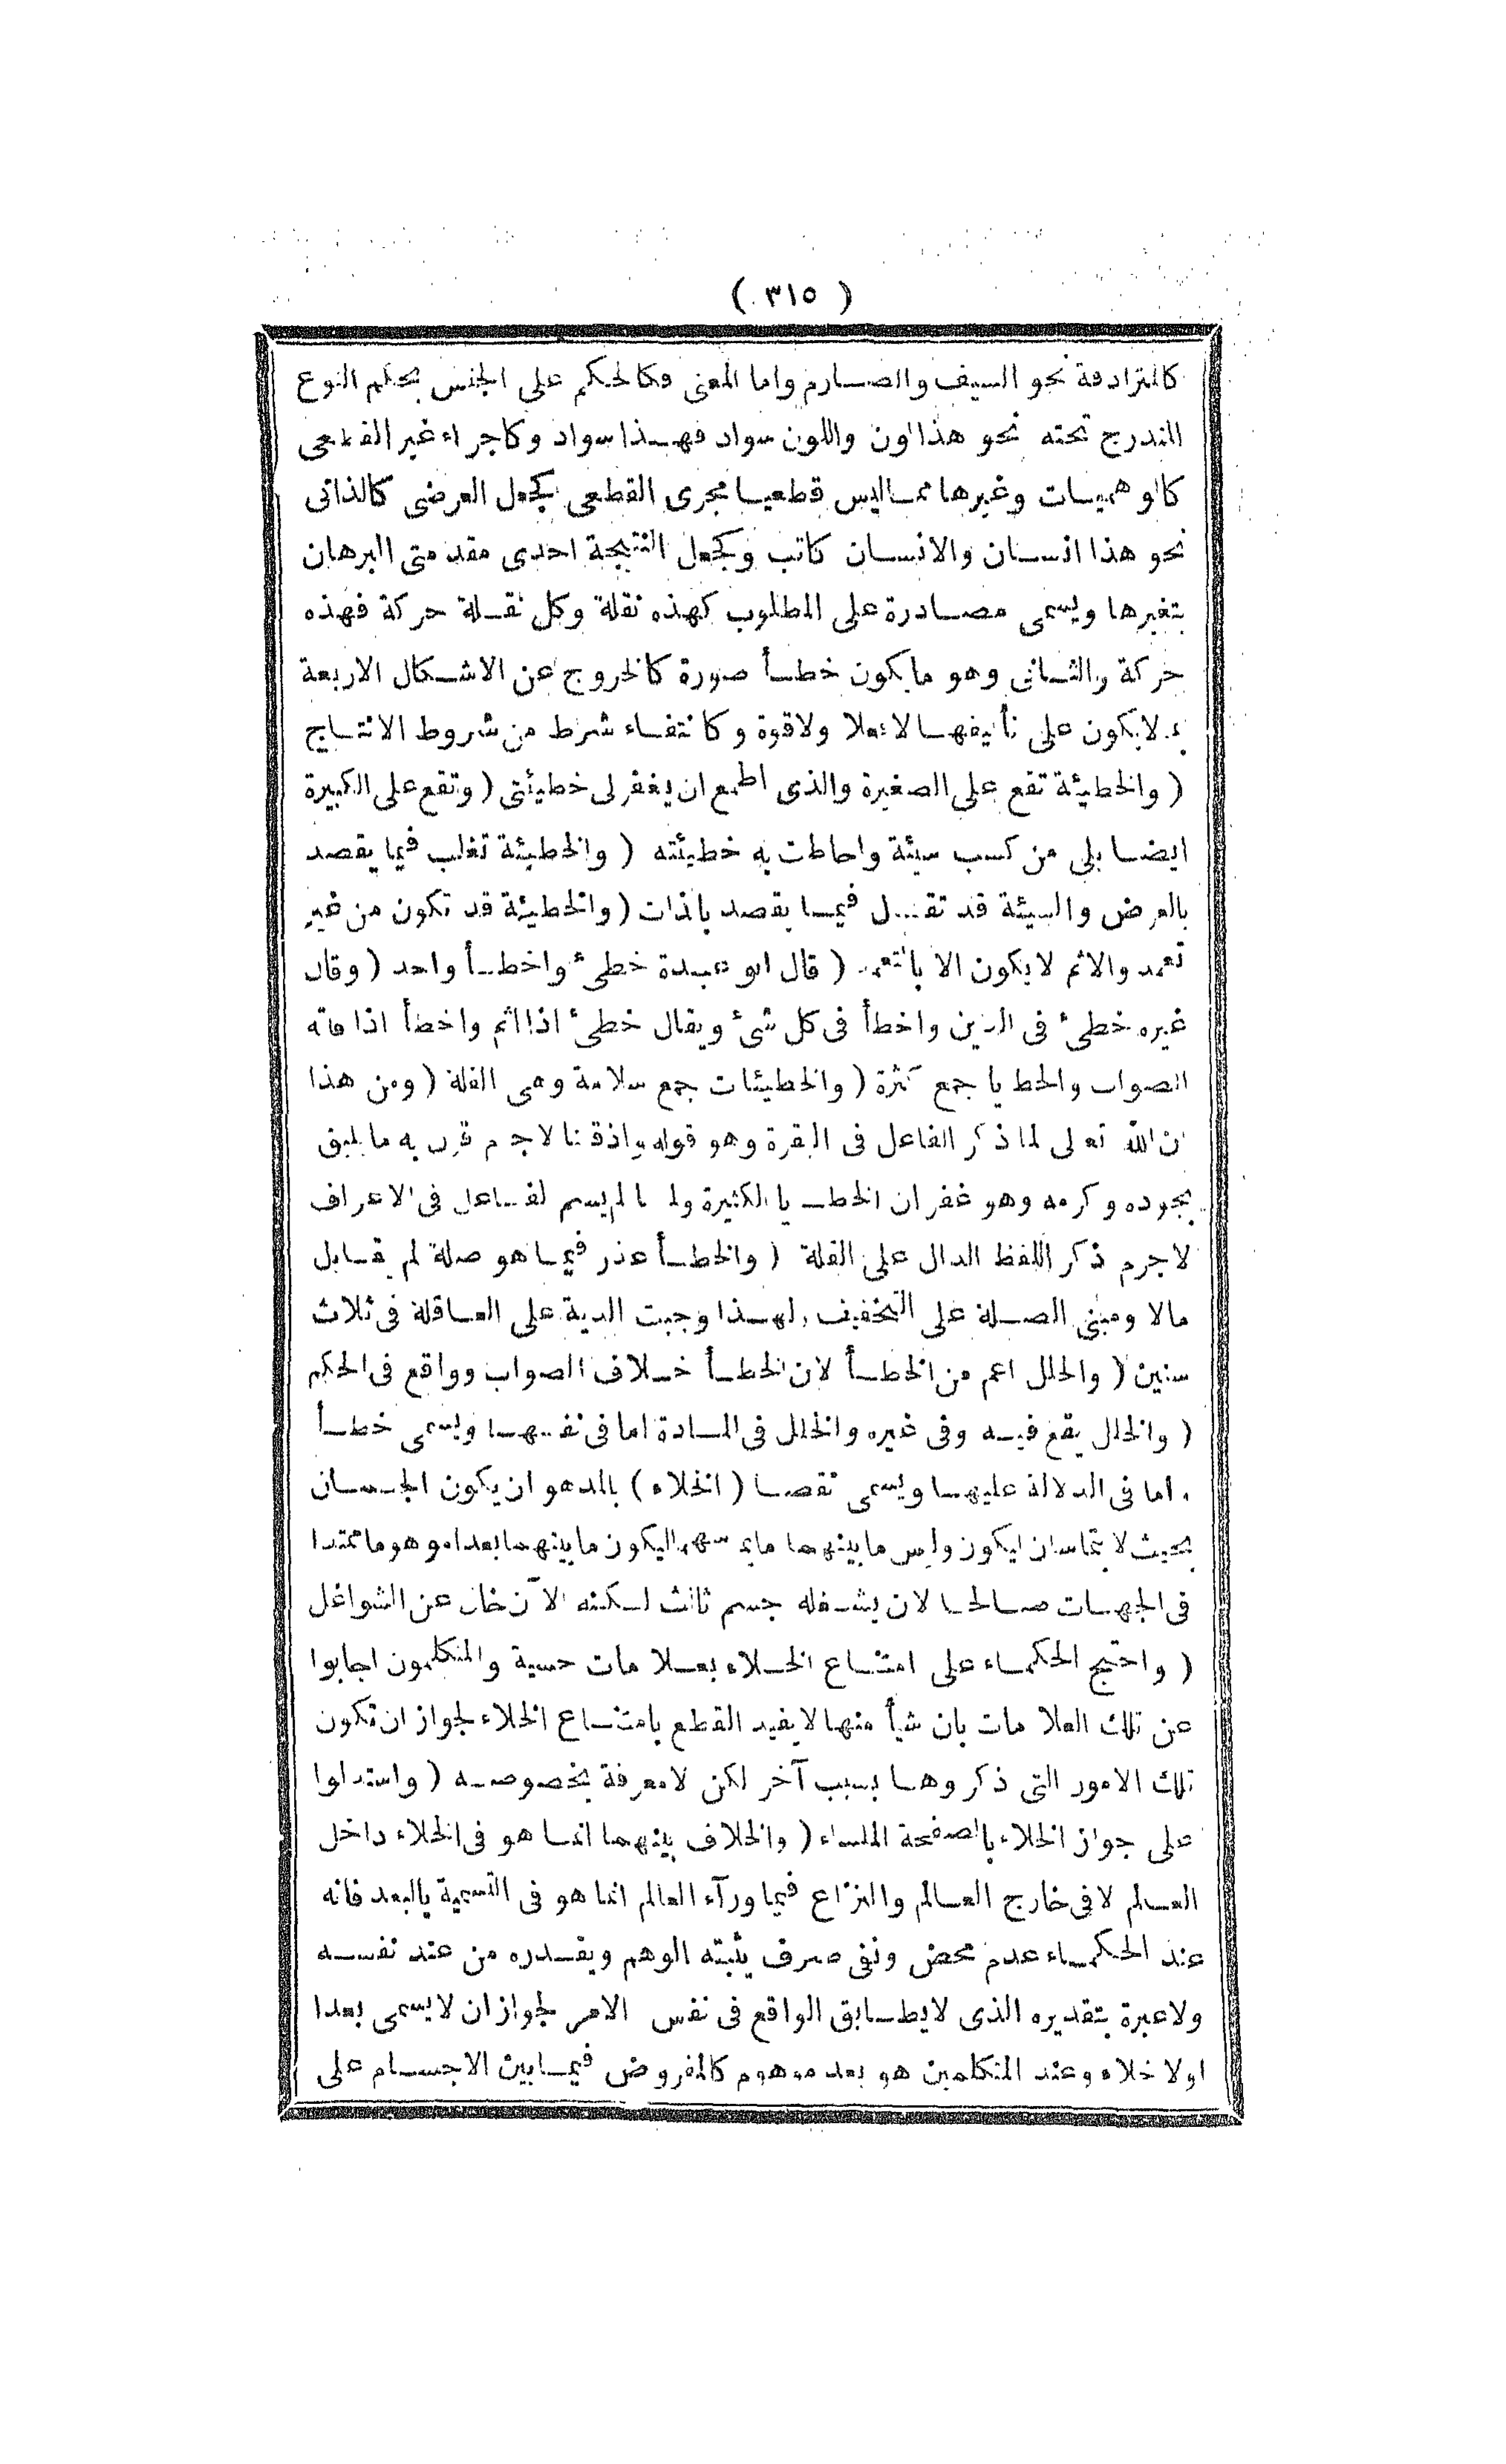 ( ٣١٥ )
كالمترادفة نحو السيف والصارم واما المعنى فكالحكم على الجنس بحكم النوع
المندرج تحته نحو هذا لون واللون سواد فهذا سواد وكاجراء غير القطعى
كالوهميات وغيرها مما ليس قطعيا مجرى القطعى كجعل العرضى كالذاتى
نحو هذا انسان والانسان كاتب وكجعل النتيجة احدى مقدمتى البرهان
بتغيرها ويسمى مصادرة على المطلوب كهذه نقلة وكل نقلة حركة فهذه
حركة والثانى وهو ما يكون خطأ صورة كالخروج عن الاشكال الاربعة
لا يكون على تأليفها لا فعلا ولا قوة وكانتفاء شرط من شروط الانتاج
( والخطيئة تقع على الصغيرة والذى اطمع ان يغفر لى خطيئتى ( وتقع على الكبيرة
ايضا بلى من كسب سيئة واحاطت به خطيئته ( والخطيئة تغلب فيما يقصد
بالعرض والسيئة قد تقال فيما يقصد بالذات ( والخطيئة قد تكون من غير
تعمد والاثم لا يكون الا بالتعمد ( قال ابو عبيدة خطئ واخطأ واحد ( وقال
غيره خطئ فى الدين واخطأ فى كل شئ ويقال خطئ اذا اثم واخطأ اذا فاته
الصواب والخطايا جمع كثرة ( والخطيئات جمع سلامة وهى القلة ( ومن هذا
ان الله تعالى لما ذكر الفاعل فى البقرة وهو قوله واذ قلنا لاجرم قرن به ما يليق
بجوده وكرمه وهو غفران الخطايا الكثيرة ولما لم يسم الفاعل فى الاعراف
لاجرم ذكر اللفظ الدال على القلة ( والخطأ عذر فيما هو صلة لم يقابل
مالا ومبنى الصلة على التخفيف ولهذا وجبت الدية على العاقلة فى ثلاث
سنين ( والخلل اعم من الخطأ لان الخطأ خلاف الصواب وواقع فى الحكم
( والخلل يقع فيه وفى غيره والخلل فى المادة اما فى نفسها ويسمى خطأ
واما فى الدلالة عليها ويسمى نقصا ( الخلاء ) بالمد هو ان يكون الجسمان
بحيث لا يتماسان ليكون وليس ما بينهما ما يماسهما ليكون ما بينهما بعدا موهوما ممتدا
فى الجهات صالحا لان يشغله جسم ثالث لكنه الآن خال عن الشواغل
( واحتج الحكماء على امتناع الخلاء بعلامات حسية والمتكلمون اجابوا
عن تلك العلامات بان شيأ منها لا يفيد القطع بامتناع الخلاء لجواز ان تكون
تلك الامور التى ذكروها بسبب آخر لكن لا معرفة بخصوصه ( واستدلوا
على جواز الخلاء بالصفحة الملساء ( والخلاف بينهما انما هو فى الخلاء داخل
العالم لا فى خارج العالم والنزاع فيما ورآء العالم انما هو فى التسمية بالبعد فانه
عند الحكماء عدم محض ونفى صرف يثبته الوهم ويقدره من عند نفسه
ولا عبرة بتقديره الذى لا يطابق الواقع فى نفس الامر لجواز ان لا يسمى بعدا
او لا خلاء وعند المتكلمين هو بعد موهوم كالمفروض فيما بين الاجسام على